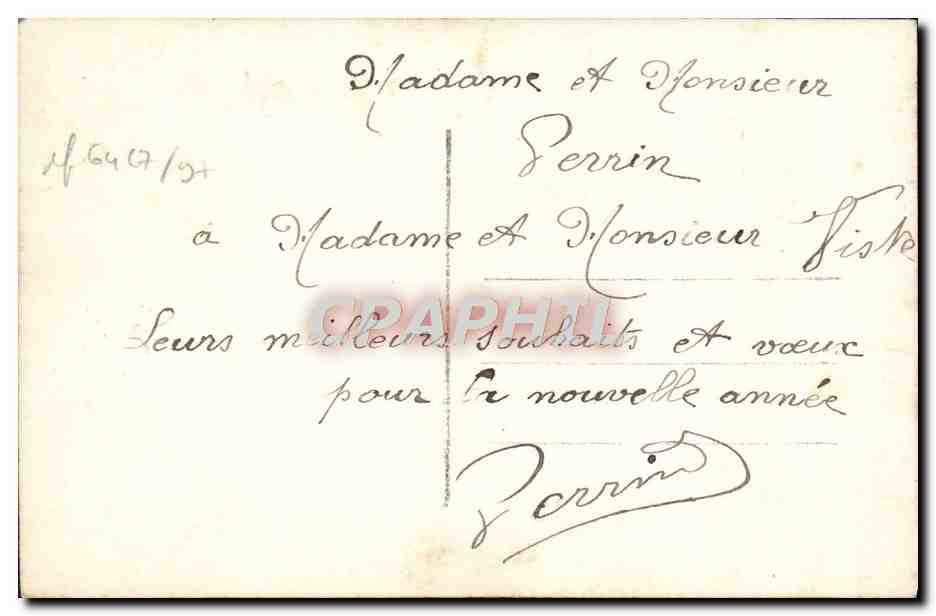 Madame et Monsieur
Perrin
à Madame et Monsieur Viste
Leurs meilleurs souhaits et vœux
pour la nouvelle année
Perrin
CPAPHIL